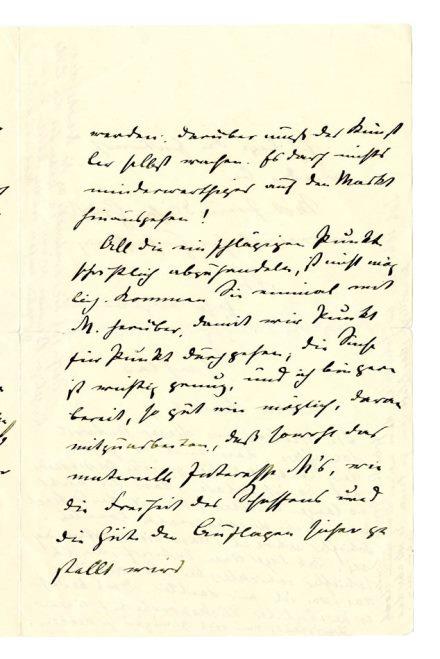 werden. Darüber muß der Künst
ler selbst wachen. Es darf nichts
minderwerthiges auf den Markt
hinausgehen!
All die einschlägigen Punkte
schriftlich abzuhandeln, ist nicht mög
lich. Kommen Sie einmal mit
M. herüber, damit wir Punkt
für Punkt durchgehen, die Sache
ist wichtig genug, und ich bin gern
bereit, so gut wie möglich, daran
mitzuarbeiten, daß sowohl das
materielle Interesse M's, wie
die Freiheit des Schaffens und
die Güte der Auflagen sicher ge
stellt wird